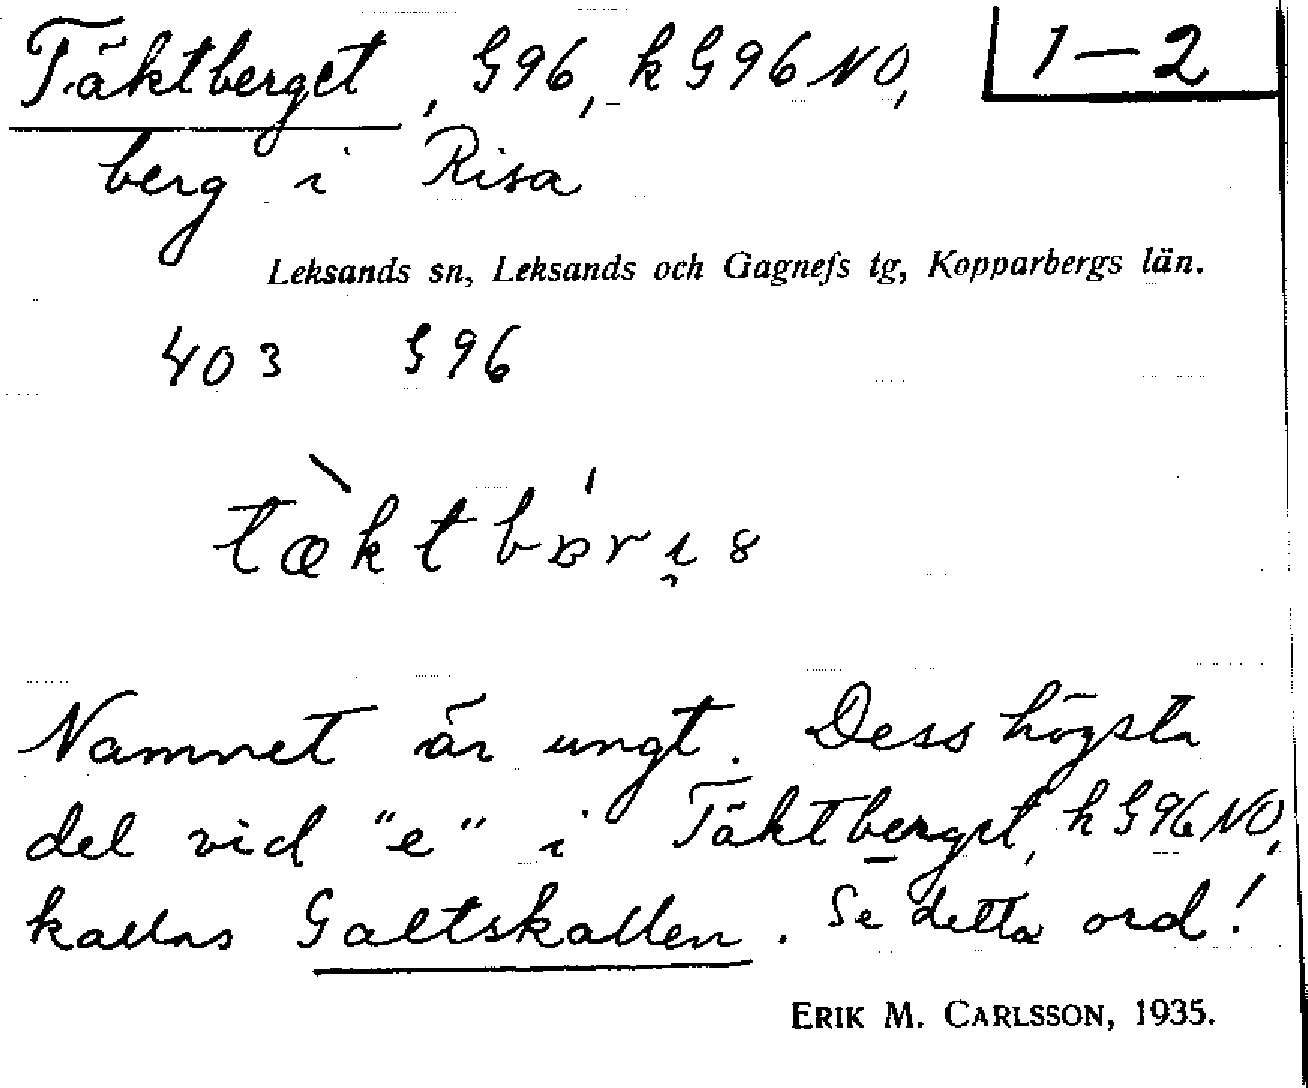 Täktberget, G96, k G96 NO, 1–2
berg i Risa
Leksands sn, Leksands och Gagnefs tg, Kopparbergs län.
403 G96
Namnet är ungt. Dess högsta
del vid "e" i Täktberget, k G96 NO,
kallas Galtskallen. Se detta ord!
ERIK M. CARLSSON, 1935.